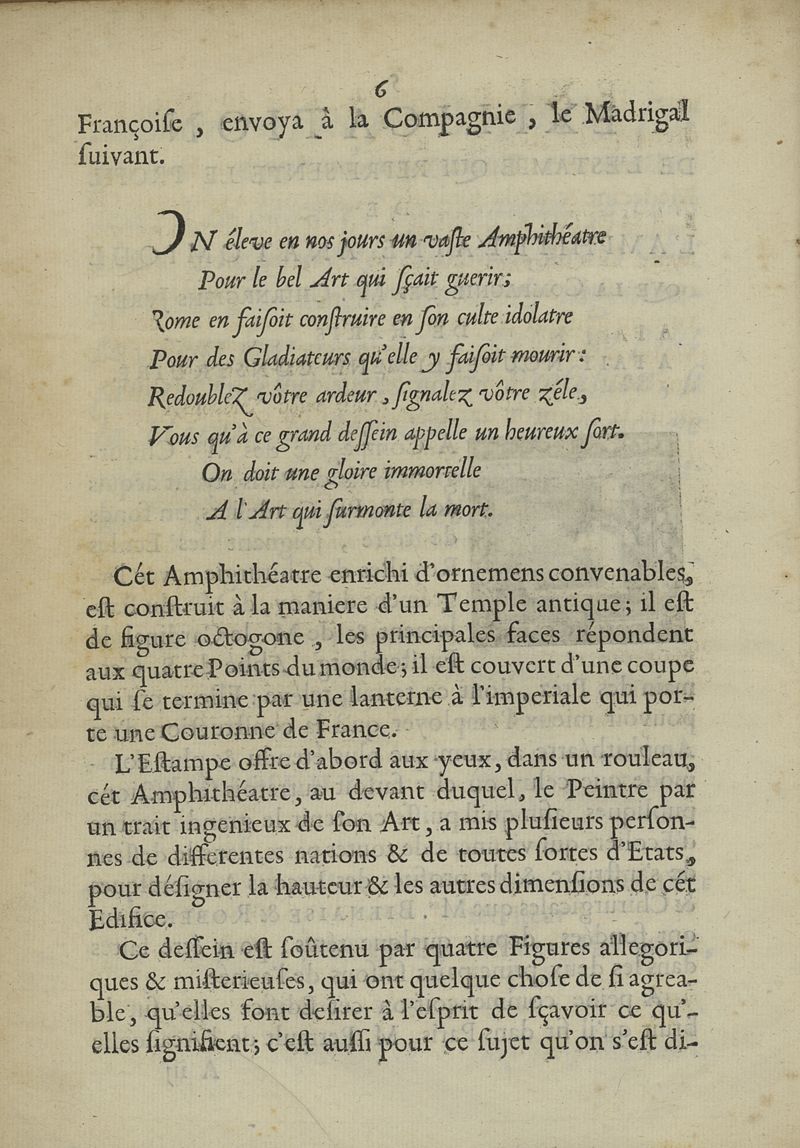 6
Françoiſe , envoya à la Compagnie , le Madrigal
ſuivant.
ON éleve en nos jours un vaſte Amphithéatre
Pour le bel Art qui ſçait guerir;
Rome en faiſoit conſtruire en ſon culte idolatre
Pour des Gladiateurs qu'elle y faiſoit mourir :
Redoublez vôtre ardeur , ſignalez vôtre zéle,
Vous qu'à ce grand deſſein appelle un heureux ſort.
On doit une gloire immortelle
A l'Art qui ſurmonte la mort.
Cét Amphithéatre enrichi d'ornemens convenables,
eſt conſtruit à la maniere d'un Temple antique; il eſt
de figure octogone , les principales faces répondent
aux quatre Points du monde; il eſt couvert d'une coupe
qui ſe termine par une lanterne à l'imperiale qui por-
te une Couronne de France.
L'Eſtampe offre d'abord aux yeux, dans un rouleau,
cét Amphithéatre, au devant duquel, le Peintre par
un trait ingenieux de ſon Art, a mis pluſieurs perſon-
nes de differentes nations & de toutes ſortes d'Etats,
pour déſigner la hauteur & les autres dimenſions de cét
Edifice.
Ce deſſein eſt ſoûtenu par quatre Figures allegori-
ques & miſterieuſes, qui ont quelque choſe de ſi agrea-
ble, qu'elles font deſirer à l'eſprit de ſçavoir ce qu'-
elles ſignifient; c'eſt auſſi pour ce ſujet qu'on s'eſt di-